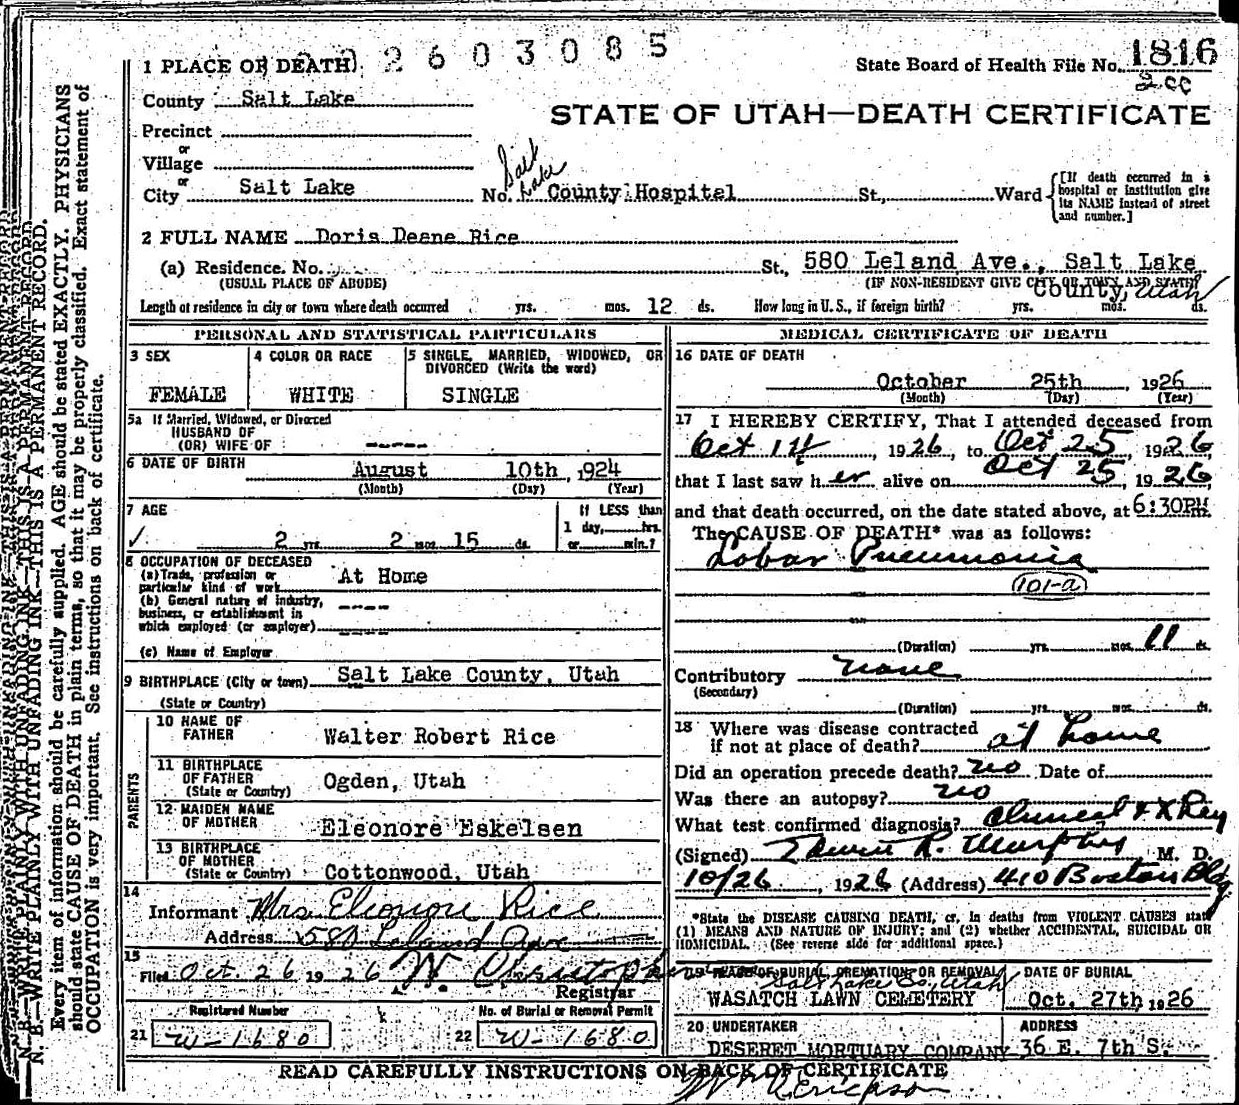 2603085
State Board of Health File No. 1816
2cc
1 PLACE OF DEATH
County Salt Lake
STATE OF UTAH—DEATH CERTIFICATE
Precinct
or
Village
or
City Salt Lake No. Salt Lake County Hospital St., Ward
[If death occurred in a hospital or institution give its NAME instead of street and number.]
2 FULL NAME Doris Deane Rice
(a) Residence. No. St., 580 Leland Ave., Salt Lake
(USUAL PLACE OF ABODE) (IF NON-RESIDENT GIVE CITY OR TOWN AND STATE)
County, Utah
Length of residence in city or town where death occurred yrs. mos. 12 ds. How long in U. S., if foreign birth? yrs. mos. ds.
PERSONAL AND STATISTICAL PARTICULARS
3 SEX
FEMALE
4 COLOR OR RACE
WHITE
5 SINGLE, MARRIED, WIDOWED, OR
DIVORCED (Write the word)
SINGLE
5a If Married, Widowed, or Divorced
HUSBAND OF
(OR) WIFE OF -----
6 DATE OF BIRTH
August 10th, 1924
(Month) (Day) (Year)
7 AGE
✓ 2 yrs. 2 mos. 15 ds.
If LESS than
1 day, hrs.
or min.?
8 OCCUPATION OF DECEASED
(a) Trade, profession or
particular kind of work At Home
(b) General nature of industry,
business, or establishment in
which employed (or employer) ----
(c) Name of Employer
9 BIRTHPLACE (City or town) Salt Lake County, Utah
(State or Country)
PARENTS
10 NAME OF
FATHER Walter Robert Rice
11 BIRTHPLACE
OF FATHER
(State or Country) Ogden, Utah
12 MAIDEN NAME
OF MOTHER Eleonore Eskelsen
13 BIRTHPLACE
OF MOTHER
(State or Country) Cottonwood, Utah
14
Informant Mrs Eleonore Rice
Address 580 Leland Ave
15
Filed Oct. 26 1926 W. Christoph
Registrar
Registered Number
21 W-1680
No. of Burial or Removal Permit
22 W-1680
MEDICAL CERTIFICATE OF DEATH
16 DATE OF DEATH
October 25th, 1926
(Month) (Day) (Year)
17 I HEREBY CERTIFY, That I attended deceased from
Oct 14, 1926, to Oct 25, 1926,
that I last saw her alive on Oct 25, 1926,
and that death occurred, on the date stated above, at 6:30PM.
The CAUSE OF DEATH* was as follows:
Lobar Pneumonia
101-a
(Duration) yrs. mos. 11 ds.
Contributory none
(Secondary)
(Duration) yrs. mos. ds.
18 Where was disease contracted
if not at place of death? at home
Did an operation precede death? no Date of
Was there an autopsy? no
What test confirmed diagnosis? Clinical & X Ray
(Signed) Edwin R. Murphy M. D.
10/26, 1926 (Address) 410 Boston Bldg
*State the DISEASE CAUSING DEATH, or, in deaths from VIOLENT CAUSES state
(1) MEANS AND NATURE OF INJURY; and (2) whether ACCIDENTAL, SUICIDAL OR
HOMICIDAL. (See reverse side for additional space.)
19 PLACE OF BURIAL, CREMATION OR REMOVAL
Salt Lake Co, Utah
WASATCH LAWN CEMETERY
DATE OF BURIAL
Oct. 27th 1926
20 UNDERTAKER
DESERET MORTUARY COMPANY
ADDRESS
36 E. 7th S.
READ CAREFULLY INSTRUCTIONS ON BACK OF CERTIFICATE
Erickson
N. B.—WRITE PLAINLY WITH UNFADING INK—THIS IS A PERMANENT RECORD.
Every item of information should be carefully supplied. AGE should be stated EXACTLY. PHYSICIANS
should state CAUSE OF DEATH in plain terms, so that it may be properly classified. Exact statement of
OCCUPATION is very important. See instructions on back of certificate.